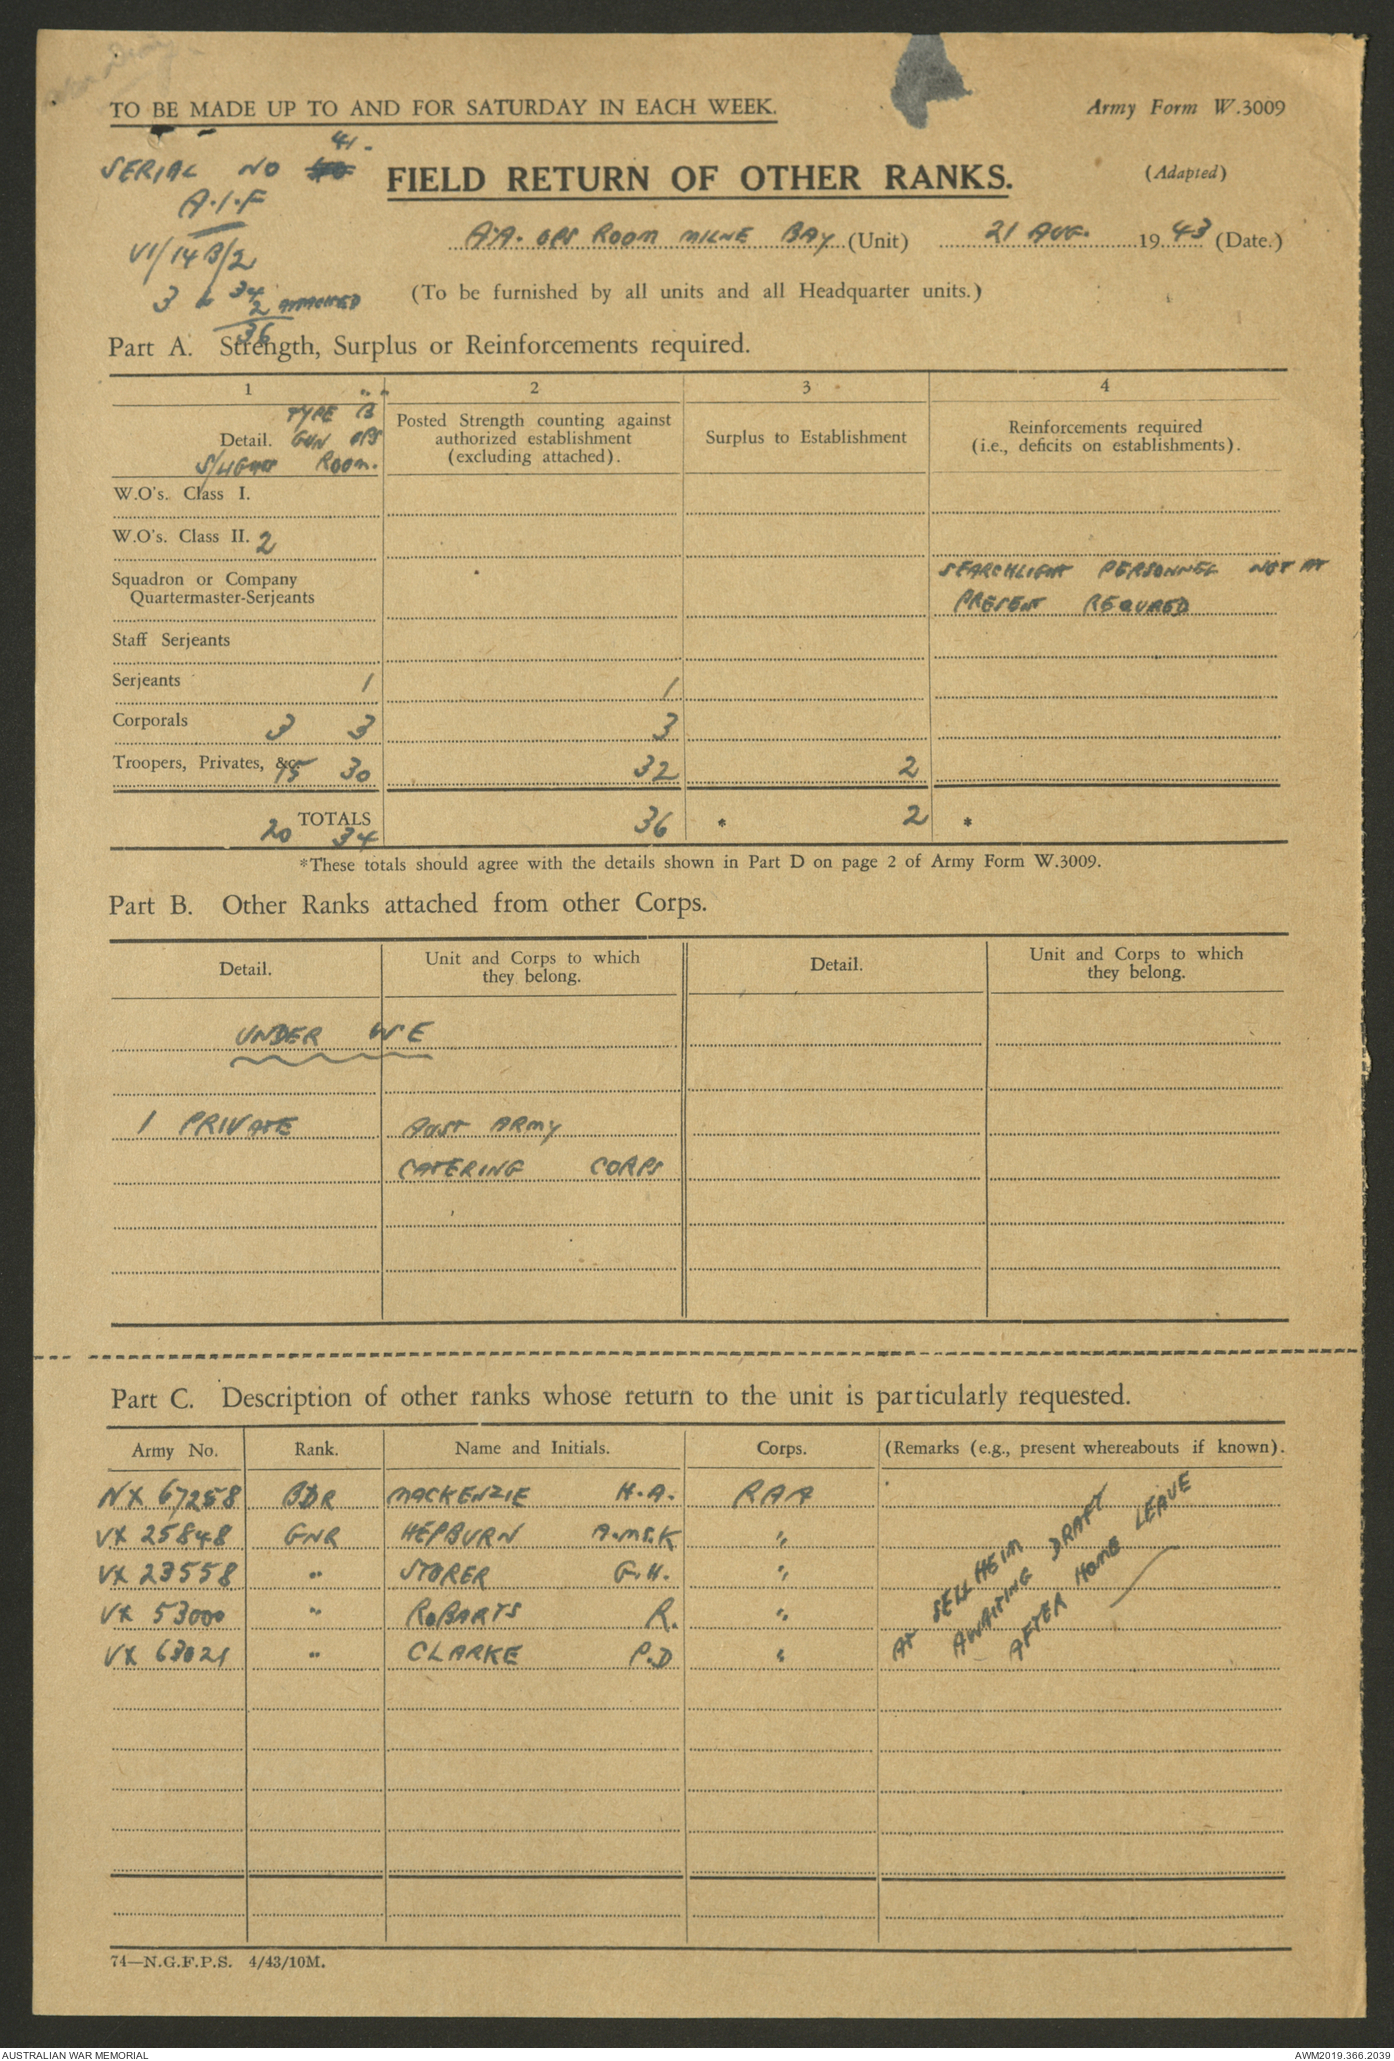 TO BE MADE UP TO AND FOR SATURDAY IN EACH WEEK.
Army Form W.3009
41.
SERIAL NO
FIELD RETURN OF OTHER RANKS.
(Adapted)
A.I.F
A.A. OPS ROOM MILNE BAY (Unit) 21 AUG. 1943 (Date.)
VI/14B/2
3 34
2 ATTACHED
36
(To be furnished by all units and all Headquarter units.)
Part A. Strength, Surplus or Reinforcements required.
1 2 3 4
TYPE B
Detail. GUN OPS
S/LIGHTS ROOM.
Posted Strength counting against
authorized establishment
(excluding attached).
Surplus to Establishment
Reinforcements required
(i.e., deficits on establishments).
W.O's. Class I.
W.O's. Class II. 2
Squadron or Company
Quartermaster-Serjeants
SEARCHLIGHT PERSONNEL NOT AT
PRESENT REQUIRED
Staff Serjeants
Serjeants 1 1
Corporals 3 3 3
Troopers, Privates, &c. 15 30 32 2
TOTALS 20 34 36 * 2 *
*These totals should agree with the details shown in Part D on page 2 of Army Form W.3009.
Part B. Other Ranks attached from other Corps.
Detail. Unit and Corps to which
they belong.
Detail. Unit and Corps to which
they belong.
UNDER WE
1 PRIVATE AUST ARMY
CATERING CORPS
Part C. Description of other ranks whose return to the unit is particularly requested.
Army No. Rank. Name and Initials. Corps. (Remarks (e.g., present whereabouts if known).
NX 67258 BDR MACKENZIE H.A. RAA
VX 25848 GNR HEPBURN A.McK "
VX 23558 " STORER G.H. "
VX 53000 " ROBARTS R. "
VX 63021 " CLARKE P.D "
AT SELLHEIM
AWAITING DRAFT
AFTER HOME LEAVE
74—N.G.F.P.S. 4/43/10M.
AUSTRALIAN WAR MEMORIAL
AWM2019.366.2039